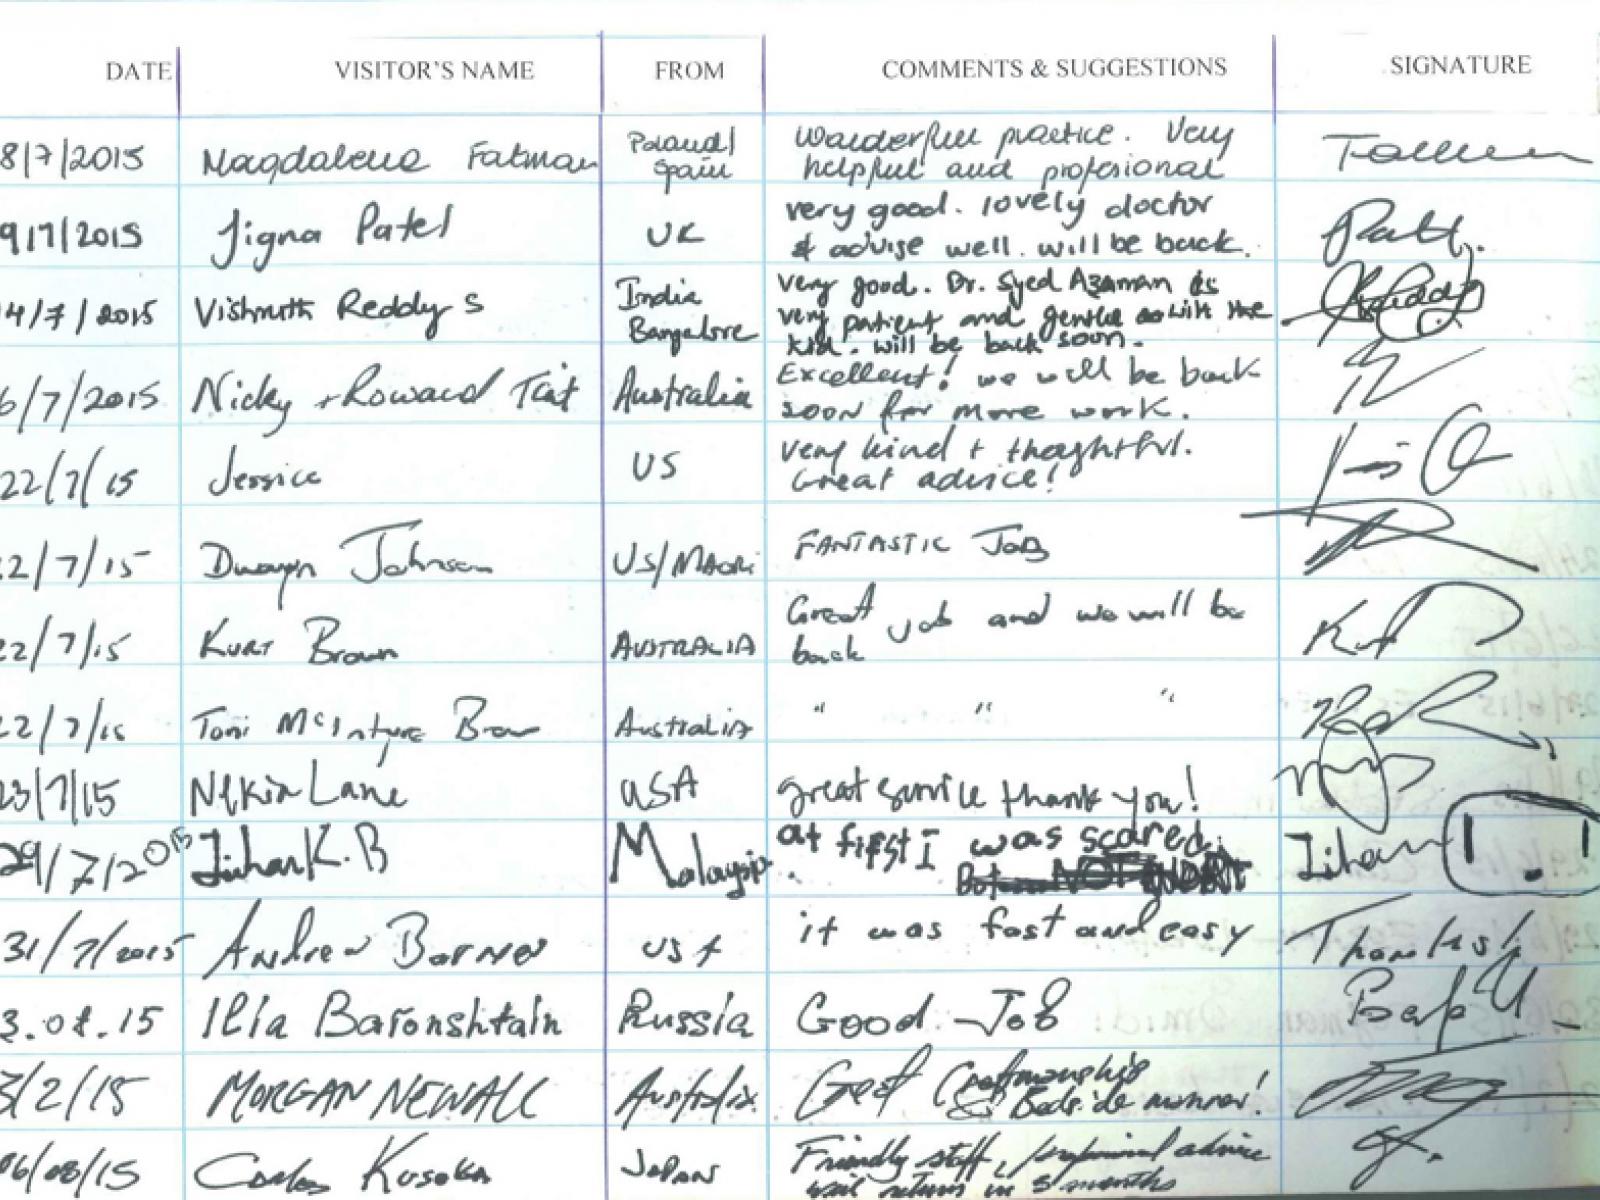 DATE VISITOR'S NAME FROM COMMENTS & SUGGESTIONS SIGNATURE
8/7/2015 Magdalena Fatman Poland/ Wonderful practice. Very
Spain helpful and profesional
9/7/2015 Jigna Patel UK very good. lovely doctor
& advise well. will be back.
14/7/2015 Reddy S India very good. Dr. Syed Azaman is
Bangalore very patient and gentle with the
kid. will be back soon.
6/7/2015 Nicky + Australia Excellent! we will be back
soon for more work.
22/7/15 Jessica US very kind + thoughtful.
Great advice!
22/7/15 Dwayn Johnson US/MAORi FANTASTIC JOB
22/7/15 KURT Brown AUSTRALIA Great job and we will be
back
22/7/15 Toni McIntyre Australia " " "
23/7/15 Lane USA great service thank you!
29/7/2015 K.B Malaysia at first I was scared. Jihan
31/7/2015 Andrew USA it was fast and easy Thanks!
3.08.15 Ilia Baronshtain Russia Good Job
3/2/15 MORGAN NEWALL Australia Great Craftmanship
Bedside manner!
06/08/15 Carlos Kosaka JAPAN Friendly staff, advice
will return in 3 months